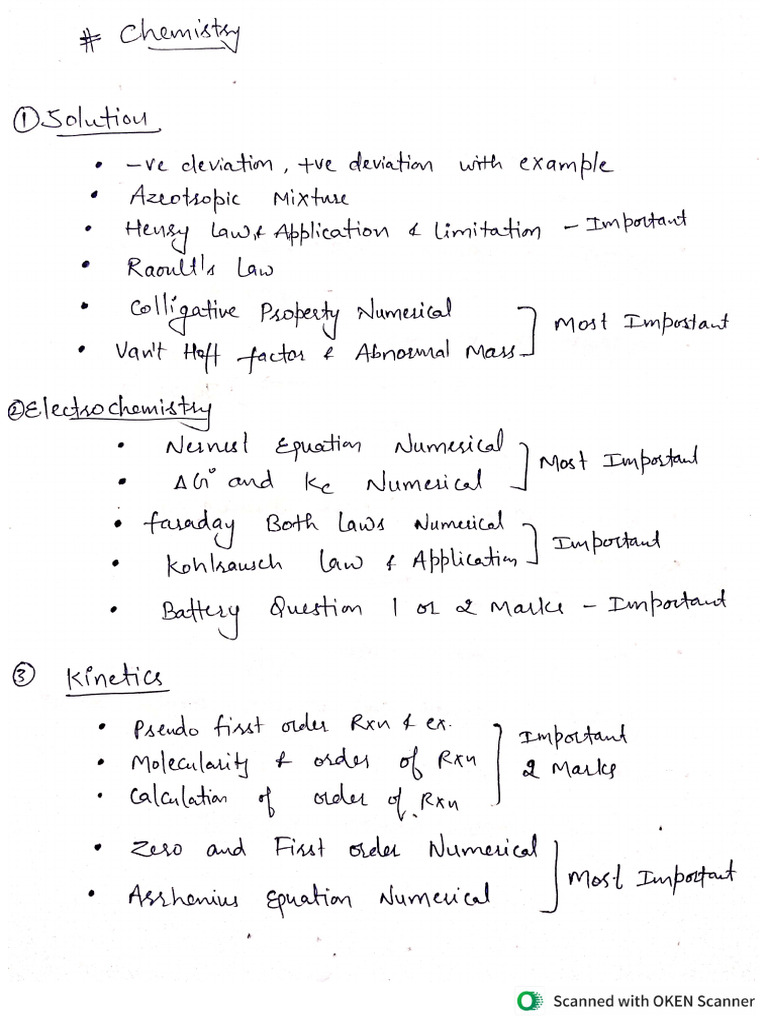 # Chemistry
① Solution
• -ve deviation, +ve deviation with example
• Azeotropic Mixture
• Henry Law & Application & Limitation - Important
• Raoult's Law
• Colligative Property Numerical
• Van't Hoff factor & Abnormal Mass
Most Important
② Electrochemistry
• Nernst Equation Numerical
• ΔG° and Kc Numerical
Most Important
• faraday Both Laws Numerical
• Kohlrausch Law & Application
Important
• Battery Question 1 or 2 Marks - Important
③ Kinetics
• Pseudo first order Rxn & ex.
• Molecularity & order of Rxn
• Calculation of order of Rxn
Important
2 Marks
• Zero and First order Numerical
• Arrhenius Equation Numerical
Most Important
Scanned with OKEN Scanner